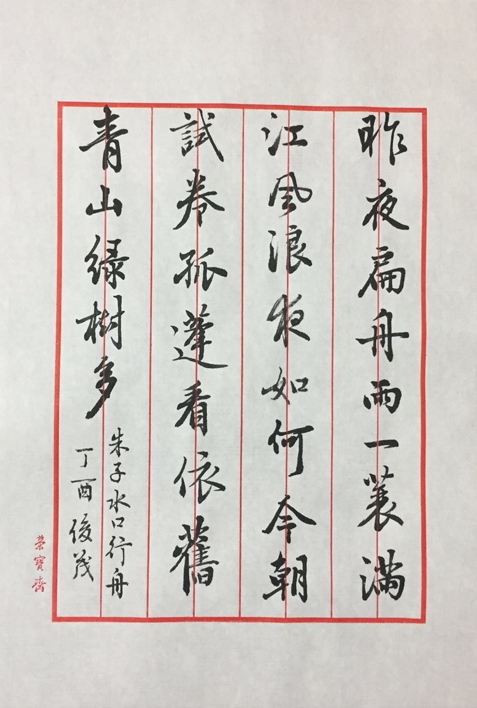 昨夜扁舟雨一蓑满
江风浪夜如何今朝
試卷孤蓬看依舊
青山绿樹多
朱子水口行舟
丁酉俊茂
榮寶齋